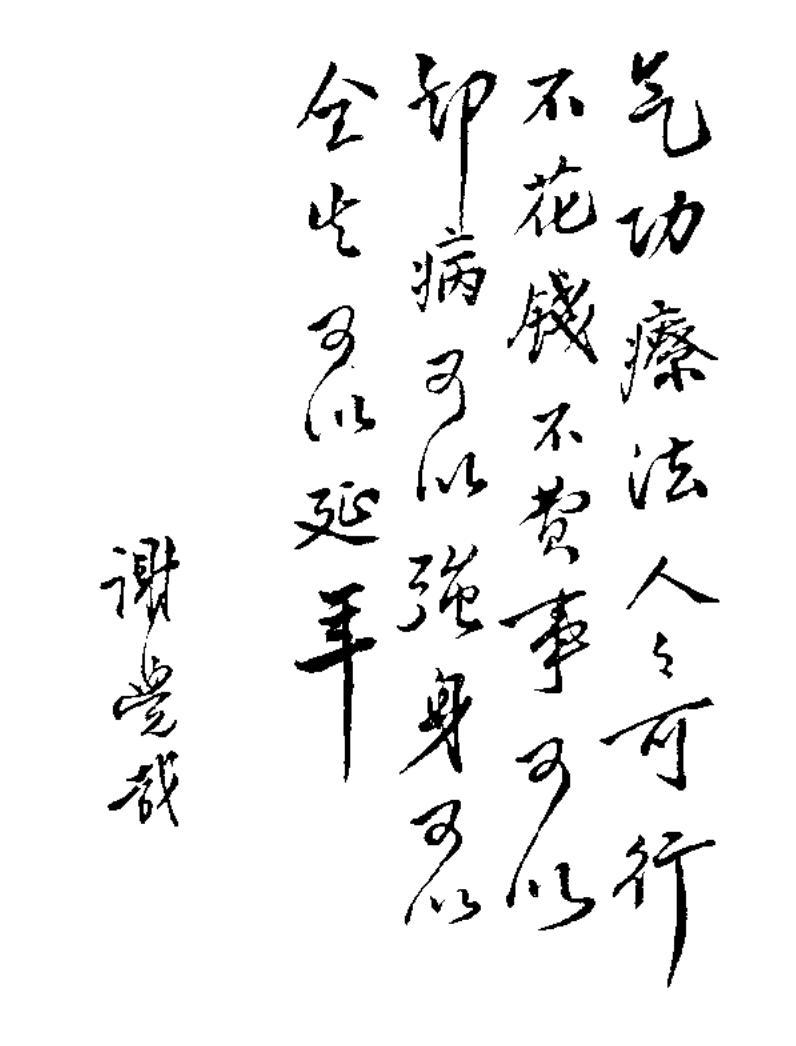 气功療法人々可行
不花錢不費事可以
却病可以強身可以
全生可以延年
谢觉哉